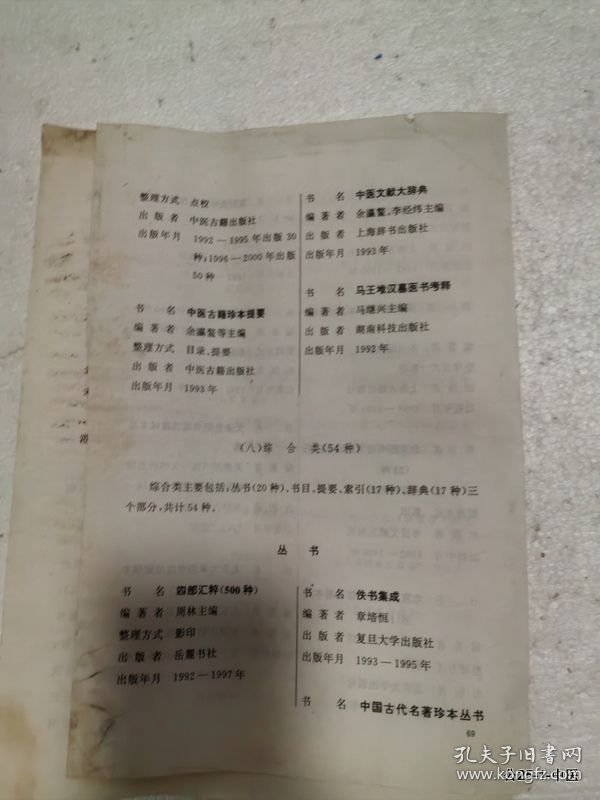 整理方式 点校
出版者 中医古籍出版社
出版年月 1992—1995年出版30
种；1996—2000年出版
50种
书名 中医古籍珍本提要
编著者 余瀛鳌等主编
整理方式 目录、提要
出版者 中医古籍出版社
出版年月 1993年
书名 中医文献大辞典
编著者 余瀛鳌、李经纬主编
出版者 上海辞书出版社
出版年月 1993年
书名 马王堆汉墓医书考释
编著者 马继兴主编
出版者 湖南科技出版社
出版年月 1992年
（八）综合类（54种）
综合类主要包括：丛书（20种）、书目、提要、索引（17种）、辞典（17种）三
个部分，共计54种。
丛书
书名 四部汇粹（500种）
编著者 周林主编
整理方式 影印
出版者 岳麓书社
出版年月 1992—1997年
书名 佚书集成
编著者 章培恒
出版者 复旦大学出版社
出版年月 1993—1995年
书名 中国古代名著珍本丛书
69
孔夫子旧书网